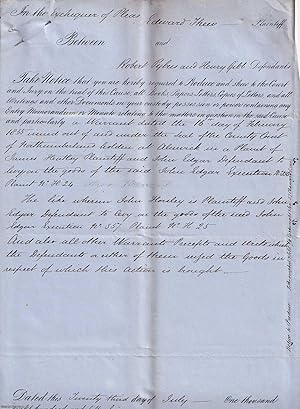 In the Exchequer of Pleas
Edward Thew Plaintiff
Between and
Robert Sykes and Henry Gibb Defendants
Take Notice that you are hereby required to Produce and shew to the Court
and Jury on the trial of this Cause all Books Papers Letters Copies of Letters and all
Writings and other Documents in your custody possession or power containing any
Entry Memorandum or Minute relating to the matters in question in the said Cause
and particularly a Warrant dated the 16th day of February
1855 issued out of and under the Seal of the County Court
of Northumberland holden at Alnwick in a Plaint of
James Plaintiff and John Edgar Defendant to
levy on the goods of the said John Edgar Execution No
Plaint No H 24
The like wherein John is Plaintiff and John
Edgar Defendant to levy on the goods of the said John
Edgar Execution No 357 Plaint No H 25
And also all other Warrants Precepts and Writs which
the Defendants or either of them seized the Goods in
respect of which this Action is brought
Dated this Twenty third day of July One thousand